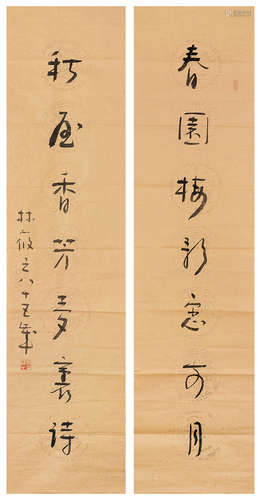 春園梅影窓前月
秋屋香芳夢裏詩
林筱之八十五歲